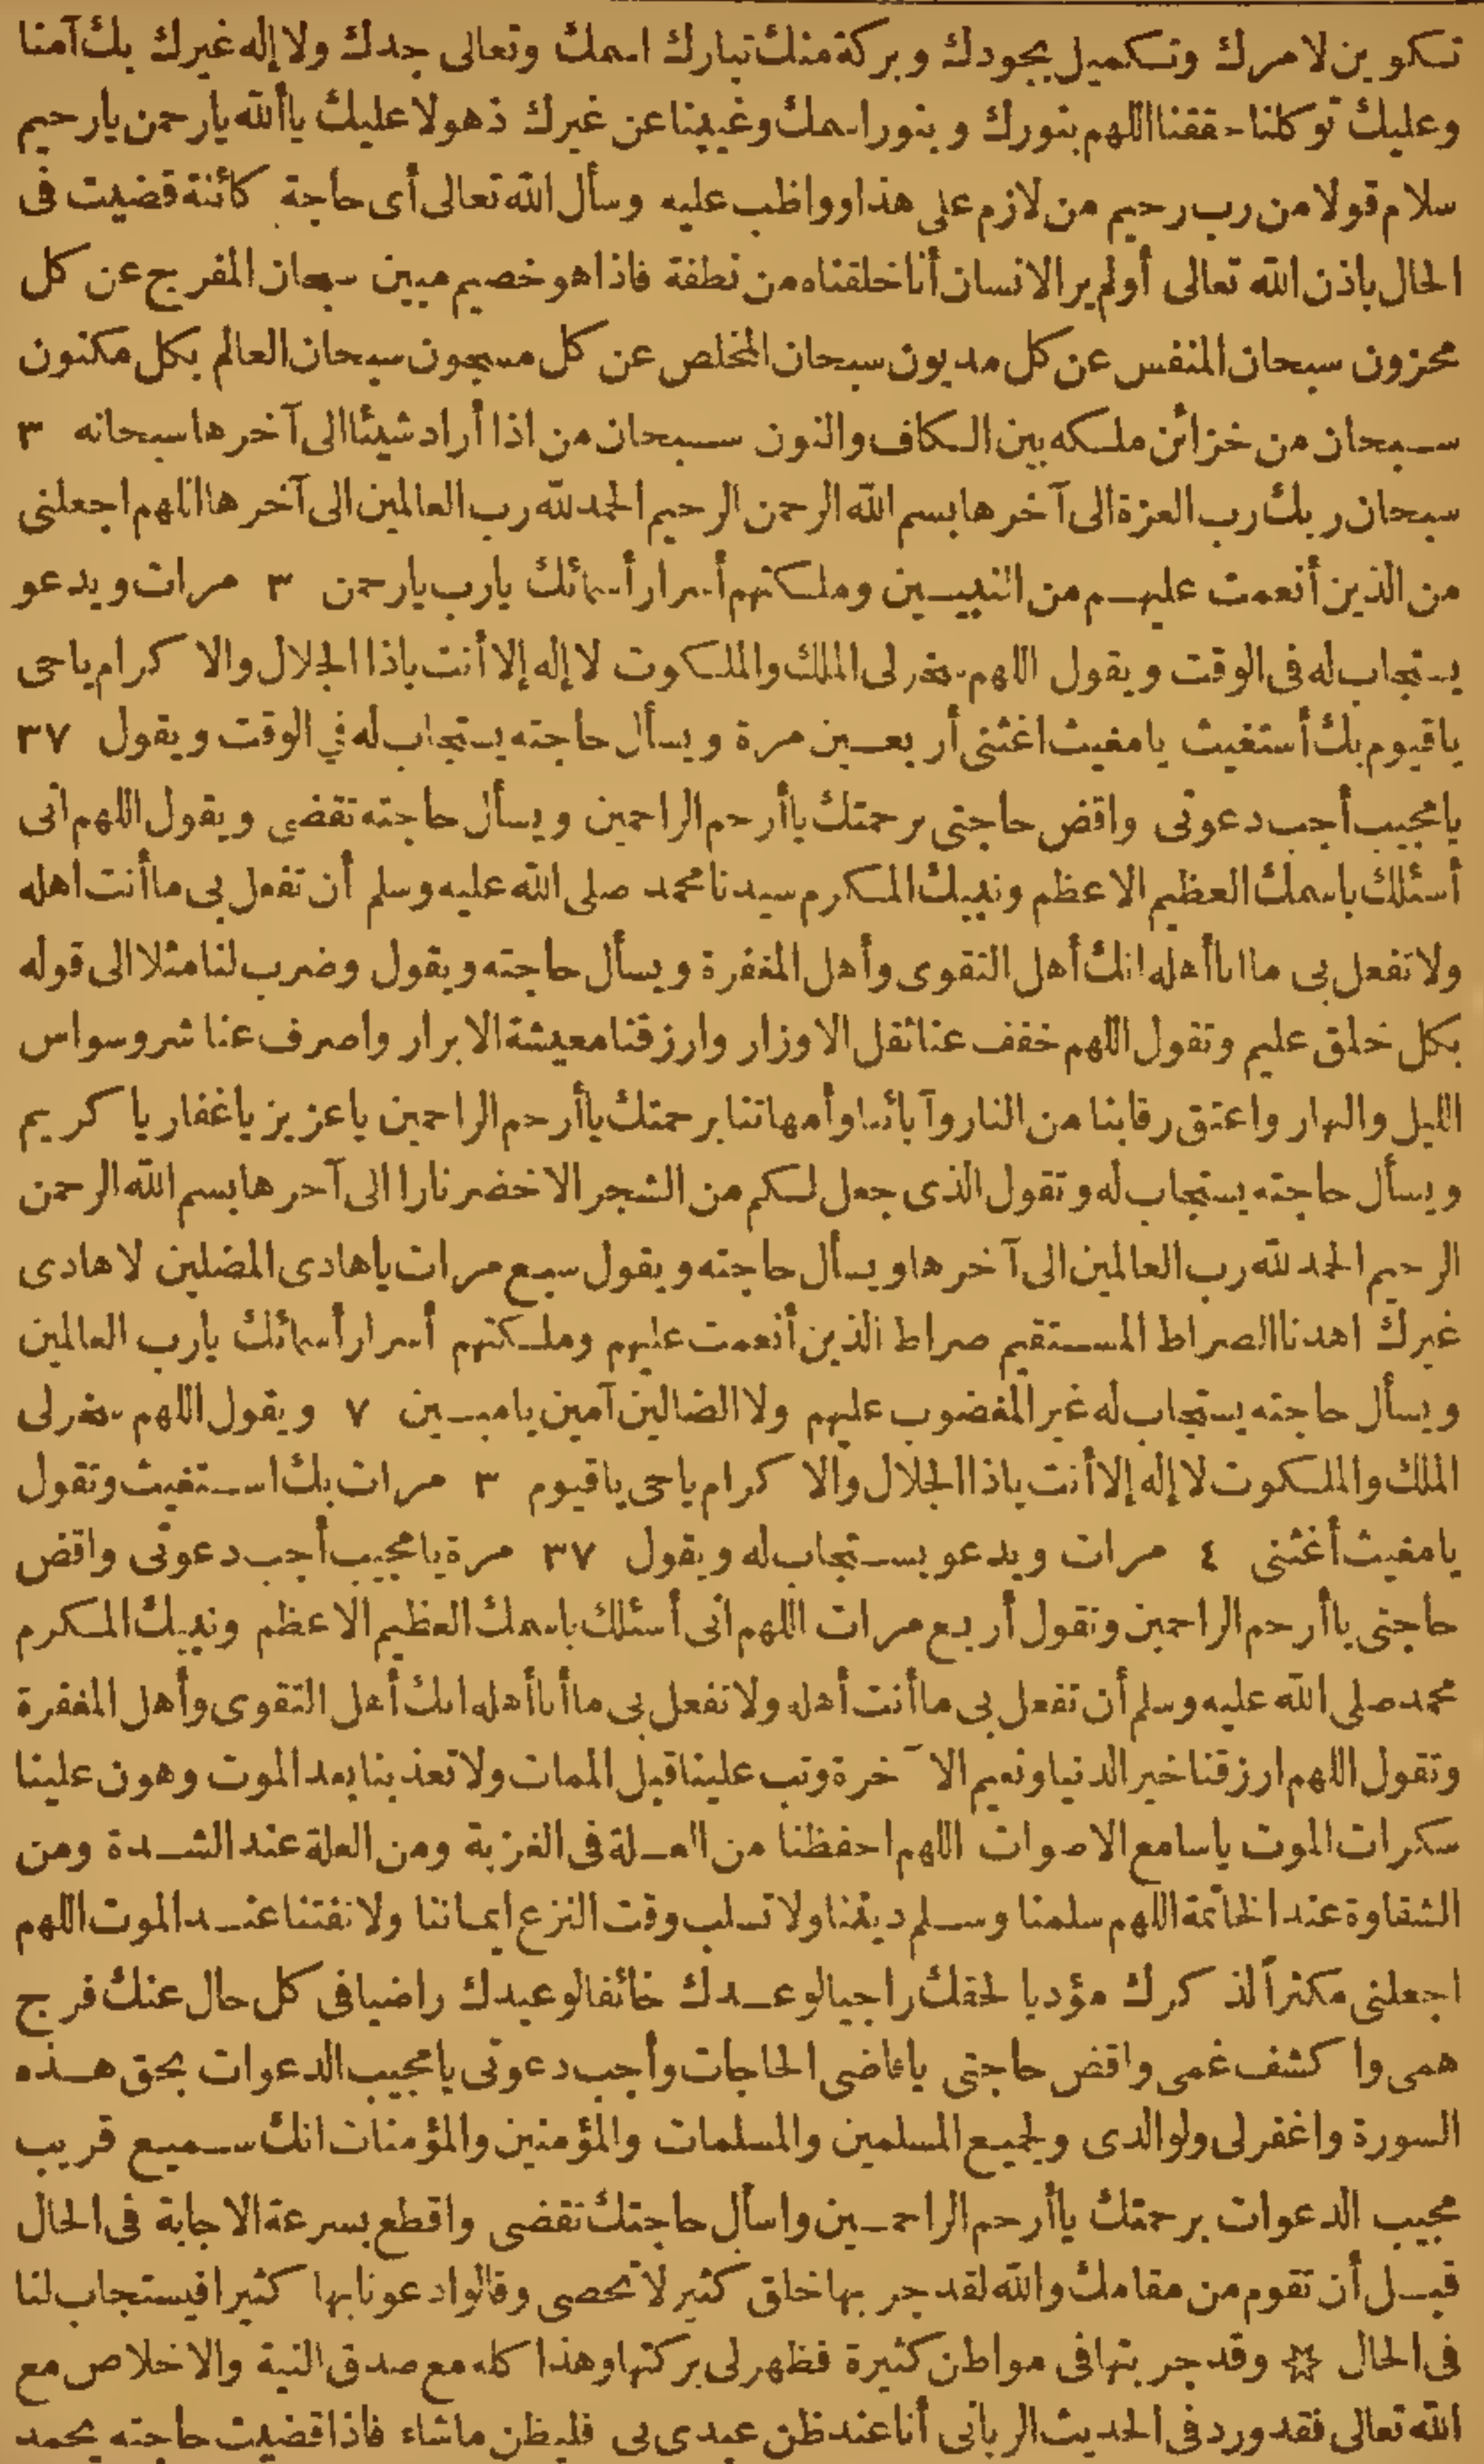 تكوين لامرك وتكميل بجودك وبركة منك تبارك اسمك وتعالى جدك ولا إله غيرك بك آمنا
وعليك توكلنا حققنا اللهم بنورك وبنور اسمك وغيبنا عن غيرك ذهولا عليك يا ألله يا رحمن يا رحيم
سلام قولا من رب رحيم من لازم على هذا وواظب عليه وسأل الله تعالى أى حاجة كائنة قضيت فى
الحال باذن الله تعالى أولم ير الانسان أنا خلقناه من نطفة فاذا هو خصيم مبين سبحان المفرج عن كل
محزون سبحان المنفس عن كل مديون سبحان المخلص عن كل مسجون سبحان العالم بكل مكنون
سبحان من خزائن ملكه بين الكاف والنون سبحان من اذا أراد شيئا الى آخرها سبحانه ٣
سبحان ربك رب العزة الى آخرها بسم الله الرحمن الرحيم الحمد لله رب العالمين الى آخرها اللهم اجعلنى
من الذين أنعمت عليهم من النبيين وملكتهم أسرار أسمائك يا رب يا رحمن ٣ مرات ويدعو
يستجاب له فى الوقت ويقول اللهم سخر لى الملك والملكوت لا إله إلا أنت ياذا الجلال والا كرام يا حى
يا قيوم بك أستغيث يا مغيث اغثنى أربعين مرة ويسأل حاجته يستجاب له في الوقت ويقول ٣٧
يا مجيب أجب دعوتى واقض حاجتى برحمتك يا أرحم الراحمين ويسأل حاجته تقضى ويقول اللهم انى
أسئلك باسمك العظيم الاعظم ونبيك المكرم سيدنا محمد صلى الله عليه وسلم أن تفعل بى ما أنت اهله
ولا تفعل بى ما انا أهله انك أهل التقوى وأهل المغفرة ويسأل حاجته ويقول وضرب لنا مثلا الى قوله
بكل خلق عليم وتقول اللهم خفف عنا ثقل الاوزار وارزقنا معيشة الابرار واصرف عنا شر وسواس
الليل والنهار واعتق رقابنا من النار وآبائنا وأمهاتنا برحمتك يا أرحم الراحمين يا عزيز يا غفار يا كريم
ويسأل حاجته يستجاب له وتقول الذى جعل لكم من الشجر الاخضر نارا الى آخرها بسم الله الرحمن
الرحيم الحمد لله رب العالمين الى آخرها ويسأل حاجته ويقول سبع مرات يا هادى المضلين لا هادى
غيرك اهدنا الصراط المستقيم صراط الذين أنعمت عليهم وملكتهم أسرار أسمائك يا رب العالمين
ويسأل حاجته يستجاب له غير المغضوب عليهم ولا الضالين آمين يا مبين ٧ ويقول اللهم سخر لى
الملك والملكوت لا إله إلا أنت ياذا الجلال والا كرام يا حى يا قيوم ٣ مرات بك استغيث وتقول
يا مغيث أغثنى ٤ مرات ويدعو يستجاب له ويقول ٣٧ مرة يا مجيب أجب دعوتى واقض
حاجتى يا أرحم الراحمين وتقول أربع مرات اللهم انى أسئلك باسمك العظيم الاعظم ونبيك المكرم
محمد صلى الله عليه وسلم أن تفعل بى ما أنت أهله ولا تفعل بى ما أنا أهله انك أهل التقوى وأهل المغفرة
وتقول اللهم ارزقنا خير الدنيا ونعيم الآخرة وتب علينا قبل الممات ولا تعذبنا بعد الموت وهون علينا
سكرات الموت يا سامع الاصوات اللهم احفظنا من العلة فى الغربة ومن العلة عند الشدة ومن
الشقاوة عند الخاتمة اللهم سلمنا وسلم ديننا ولا تسلب وقت النزع ايماننا ولا تفتنا عند الموت اللهم
اجعلنى مكثرا لذ كرك مؤديا لحقك راجيا لوعدك خائفا لوعيدك راضيا فى كل حال عنك فرج
همى وا كشف غمى واقض حاجتى يا قاضى الحاجات وأجب دعوتى يا مجيب الدعوات بحق هذه
السورة واغفر لى ولوالدى ولجميع المسلمين والمسلمات والمؤمنين والمؤمنات انك سميع قريب
مجيب الدعوات برحمتك يا أرحم الراحمين واسأل حاجتك تقضى واقطع بسرعة الاجابة فى الحال
قبل أن تقوم من مقامك والله لقد جربها خلق كثير لا تحصى وقالوا دعونا بها كثيرا فيستجاب لنا
فى الحال ☆ وقد جربتها فى مواطن كثيرة فظهر لى بركتها وهذا كله مع صدق النية والاخلاص مع
الله تعالى فقد ورد فى الحديث الربانى أنا عند ظن عبدى بى فليظن ما شاء فاذا قضيت حاجته يحمد